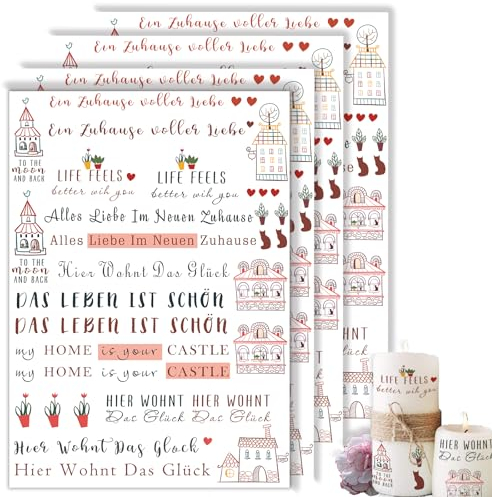 Ein Zuhause voller Liebe
Ein Zuhause voller Liebe
Ein Zuhause voller Liebe
Ein Zuhause voller Liebe
Ein Zuhause voller Liebe
TO THE
moon
AND BACK
LIFE FEELS
better wih you
LIFE FEELS
better wih you
Alles Liebe Im Neuen Zuhause
Alles Liebe Im Neuen Zuhause
TO THE
moon
AND BACK
Hier Wohnt Das Glück
DAS LEBEN IST SCHÖN
DAS LEBEN IST SCHÖN
my HOME is your CASTLE
my HOME is your CASTLE
HIER WOHNT
Das Glück
HIER WOHNT
Das Glück
Hier Wohnt Das Glock
Hier Wohnt Das Glück
LIFE FEELS
better wih you
HIER WOHNT
Das Glück